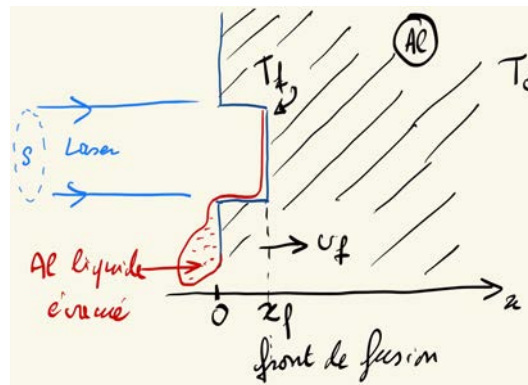 Al
T_f
T_0
S
Laser
v_f
Al liquide
évacué
0
x_f
x
front de fusion